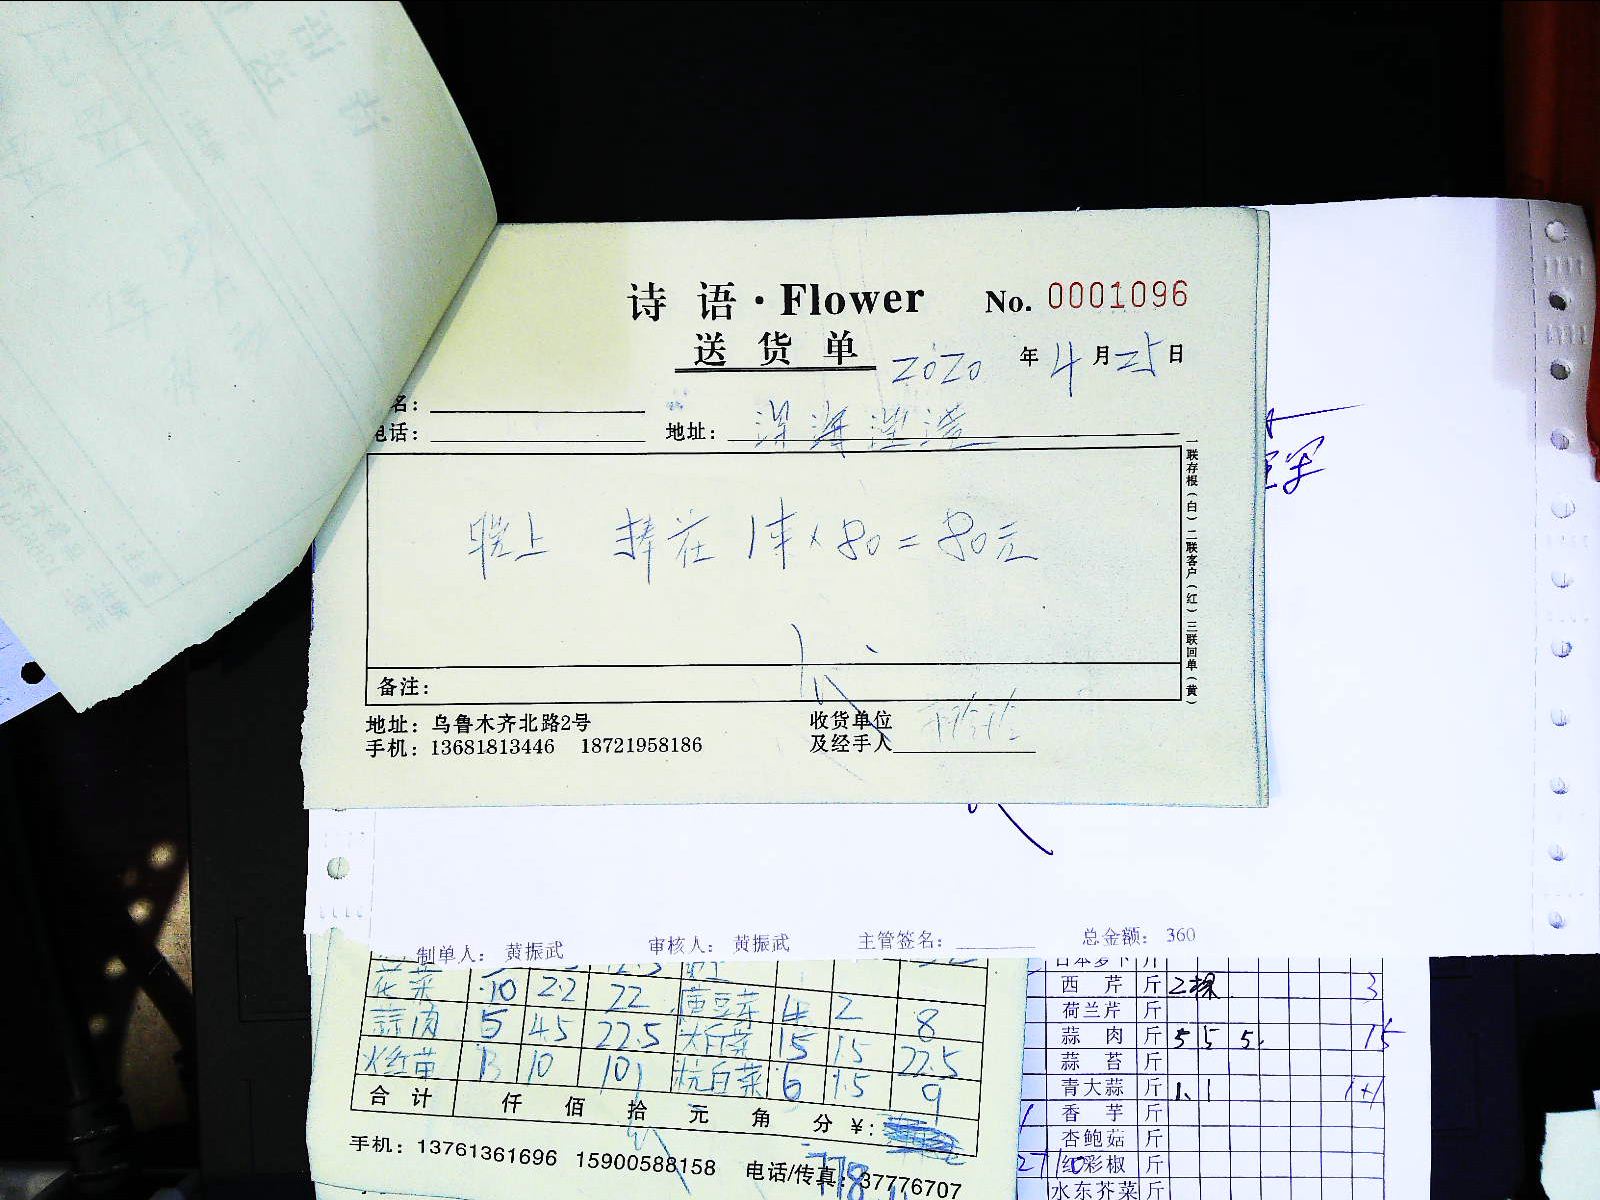 诗 语·Flower No. 0001096
送 货 单 2020 年 4 月 25 日
名：
电话： 地址：
晚上 捧花 1束×80=80元
一联存根（白）二联客户（红）三联回单（黄）
备注：
地址：乌鲁木齐北路2号 收货单位
手机：13681813446 18721958186 及经手人
制单人： 黄振武 审核人： 黄振武 主管签名： 总金额： 360
花菜 10 2.2 22 4 2 8
蒜肉 5 4.5 22.5 15 1.5 22.5
10 杭白菜 6 1.5 9
合 计 仟 佰 拾 元 角 分 ¥：
手机：13761361696 15900588158 电话/传真：37776707
778
日本萝卜 斤
西 芹 斤 2棵 3
荷兰芹 斤
蒜 肉 斤 5 5 5. 15
蒜 苔 斤
青大蒜 斤 1.1 1+1
香 芋 斤
杏鲍菇 斤
红彩椒 斤
水东芥菜 斤